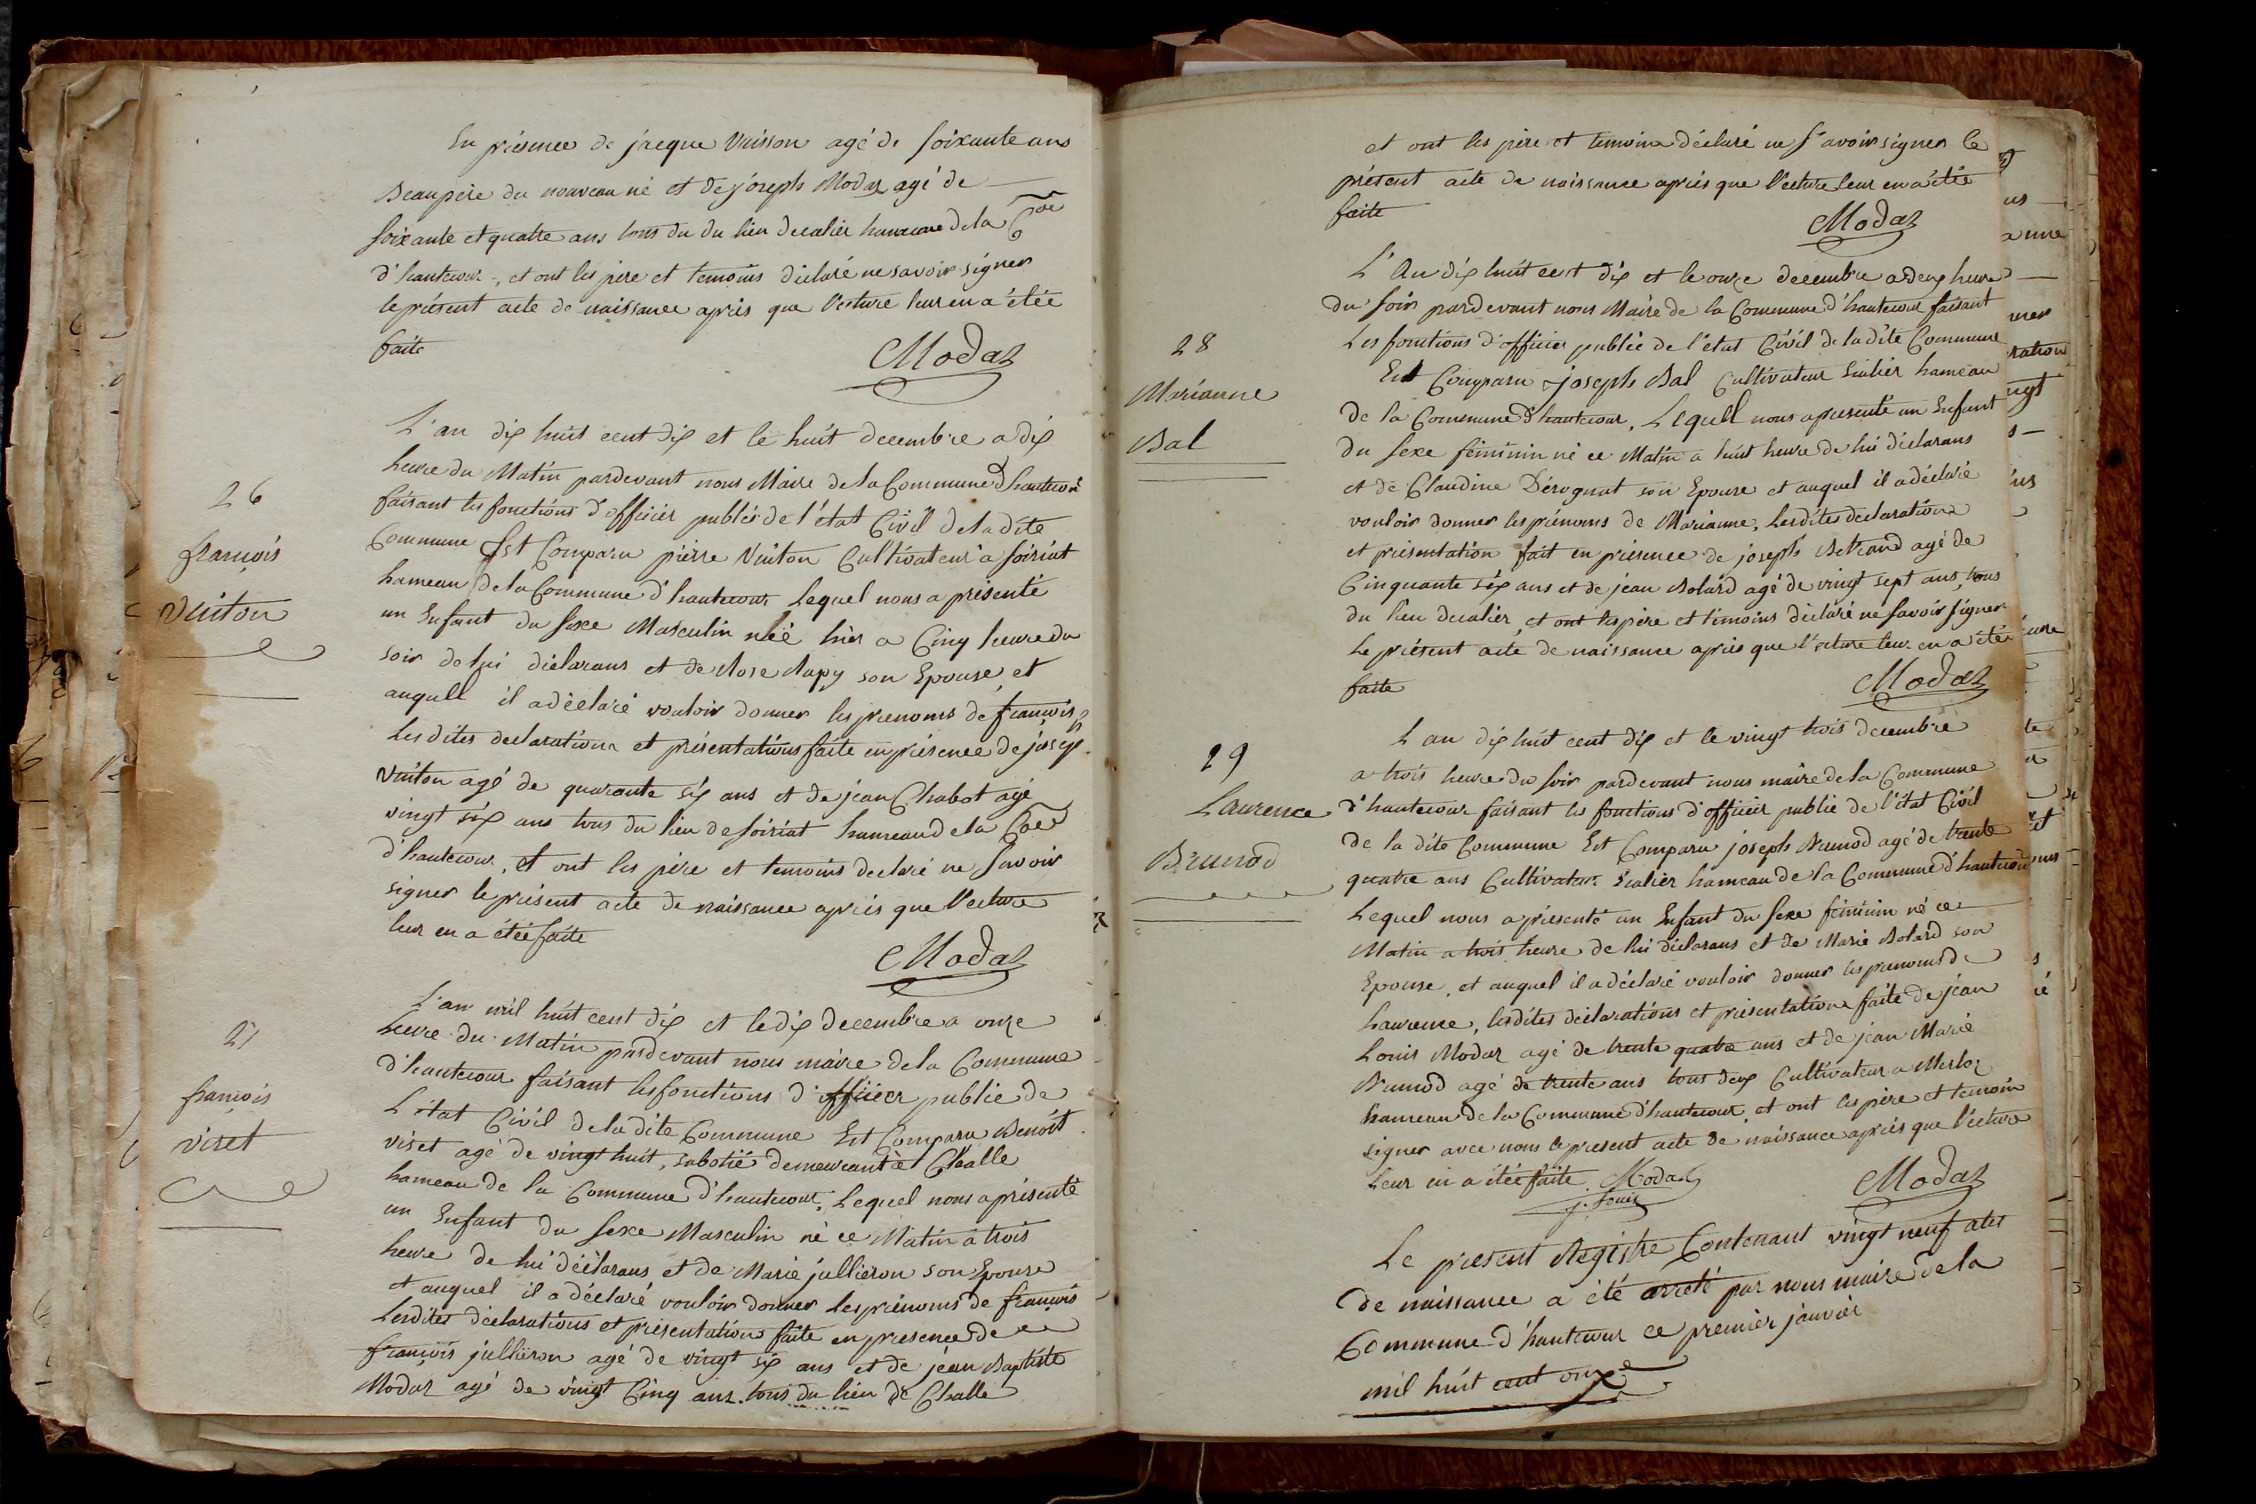 En présence de jacque Vuisson agé de soixante ans
Beaupère du nouveau né et de joseph Modaz agé de
soixante et quatre ans tous du du lieu hameau de la Coe
d'hautecour, et ont les pere et temoins déclaré ne savoir signer
le présent acte de naissance après que l'ecture leur en a étée
faite
Modaz
26
françois
Vuiton
L'an dix huit cent dix et le huit decembre a dix
heure du Matin pardevant nous Maire de la Commune d'hautecour
faisant les fonctions d'officier publié de l'état Civil de la dite
Commune Est Comparu pierre Vuiton Cultivateur a soiriat
hameau de la Commune d'hautecour Lequel nous a présenté
un Enfant du sexe Masculin néé hier a Cinq heure du
soir de lui déclarans et de Rose Rapy son Epouse, et
auquell il a déclaré vouloir donner les prenoms de françois,
Lesdites declarations et présentations faite en présence de joseph
Vuiton agé de quarante six ans et de jean Chabot agé
vingt six ans tous du lieu de soiriat hameau de la Coe
d'hautecour, et ont les pére et temoins declaré ne savoir
signer le présent acte de naissance après que l'ecture
leur en a étéé faite
Modaz
27
françois
viret
L'an mil huit cent dix et le dix decembre a onze
heure du Matin pardevant nous maire de la Commune
d'hautecour faisant les fonctions d'officier publié de
L'état Civil de la dite Commune Est Comparu Benoit
viret agé de vingt huit, sabotié demeurant à Challe
hameau de la Commune d'hautecour, Lequel nous a présenté
un Enfant du sexe Masculin né ce Matin a trois
heure de lui déclarans et de Marie jullieron son Epouse
et auquel il a déclaré vouloir donner les prénoms de françois
Lesdites déclarations et présentation faite en presence de
françois jullieron agé de vingt six ans et de jean Baptiste
Modaz agé de vingt Cinq ans tous du lieu de Challe
et ont les père et temoins déclaré ne s'avoir signer le
présent acte de naissance après que l'ecture leur en a étée
faite
Modaz
28
Marianne
Bal
L'An dix huit cent dix et le onze decembre a deux heure
du soir pardevant nous Maire de la Commune d'hautecour faisant
Les fonctions d'officier publié de l'état Civil de la dite Commune
Est Comparu joseph Bal Cultivateur hameau
de la Commune d'hautecour, Lequell nous a presenté un Enfant
du sexe féminin né ce Matin a huit heure de lui déclarans
et de Claudine Dérognat son Epouse et auquel il a déclaré
vouloir donner les prénoms de Marianne, Lesdites declarations
et présentation fait en présence de joseph Betrand agé de
Cinquante six ans et de jean Bolard agé de vingt sept ans, tous
du lieu, et ont les père et témoins déclaré ne savoir signer
Le présent acte de naissance après que l'ecture leur en a été
faite
Modaz
29
Laurence
Brunod
L'an dix huit cent dix et le vingt trois decembre
a trois heure du soir pardevant nous maire de la Commune
d'hautecour faisant les fonctions d'officier publié de l'état Civil
de la dite Commune Est Comparu joseph Brunod agé de trente
quatre ans Cultivateur hameau de la Commune d'hautecour
Lequel nous a présenté un Enfant du sexe féminin né ce
Matin a trois heure de lui déclarans et de Marie Bolard son
Epouse, et auquel il a déclaré vouloir donner les prenoms de
Laurence, lesdites déclarations et présentations faite de jean
Louis Modaz agé de trente quatre ans et de jean Marie
Brunod agé de trente ans tous deux Cultivateur a Merloz
hameau de la Commune d'hautecour, et ont les père et temoin
signer avec nous le present acte de naissance après que l'écture
Leur en a étée faite. Modaz
j. Louis
Modaz
Le present Registre Contenant vingt neuf actes
de naissance a été arreté par nous maire de la
Commune d'hautecour ce premier janvier
mil huit cent onze